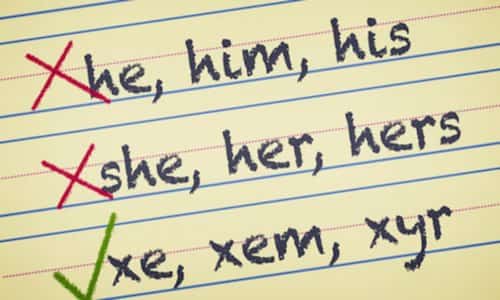 he, him, his
she, her, hers
xe, xem, xyr